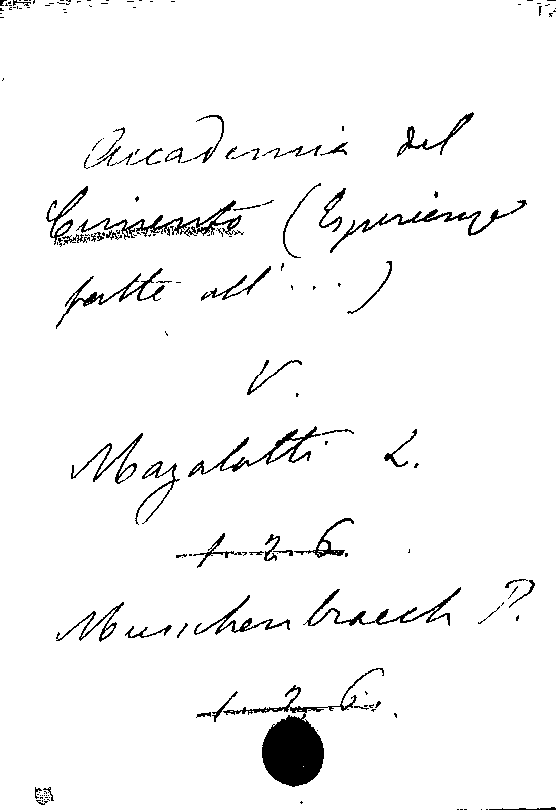 Accademia del
Cimento (Esperienze
fatte all'...)
V.
Magalotti L.
1 2 6.
Musschenbroech P.
1 2 6.